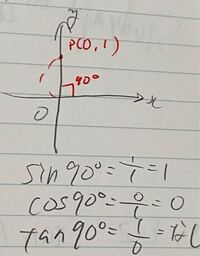 y
P(0,1)
1
90°
x
O
sin90°=1/1=1
cos90°=0/1=0
tan90°=1/0=なし